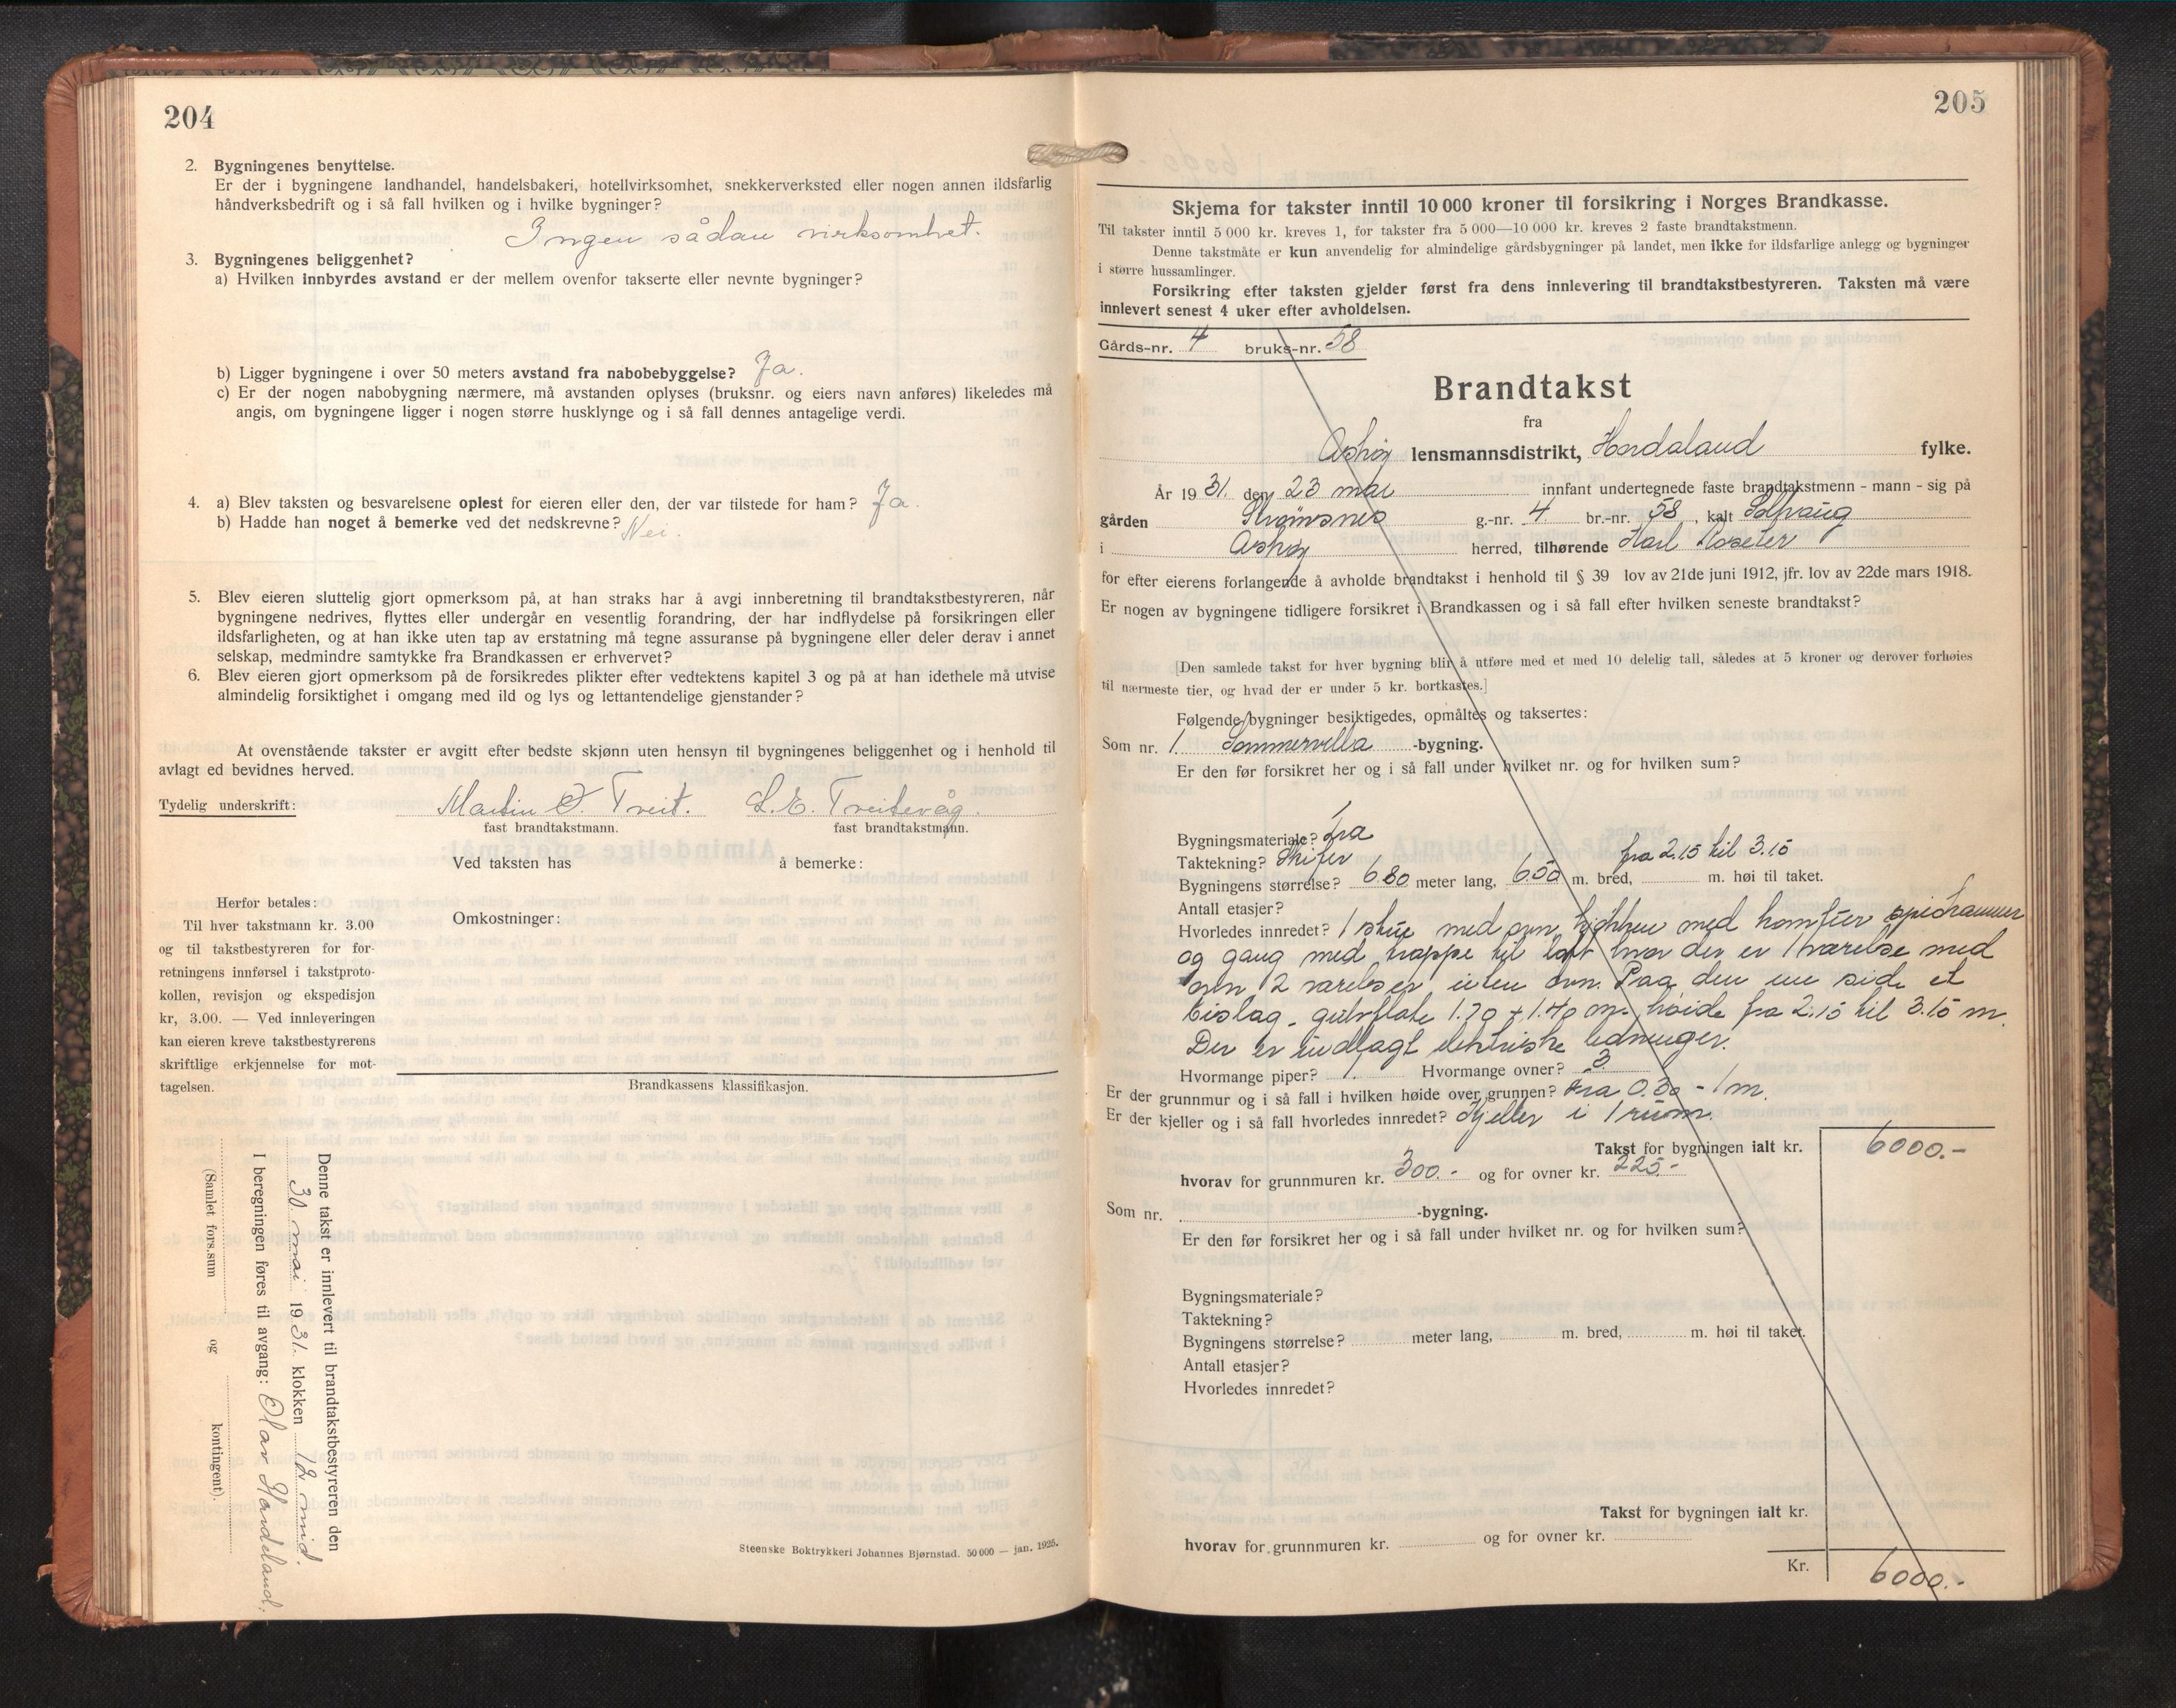 204
2. Bygningenes benyttelse.
Er der i bygningene landhandel, handelsbakeri, hotellvirksomhet, snekkerverksted eller nogen annen ildsfarlig
håndverksbedrift og i så fall hvilken og i hvilke bygninger?
Ingen sådan virksomhet.
3. Bygningenes beliggenhet?
a) Hvilken innbyrdes avstand er der mellem ovenfor takserte eller nevnte bygninger?
b) Ligger bygningene i over 50 meters avstand fra nabobebyggelse? Ja.
c) Er der nogen nabobygning nærmere, må avstanden oplyses (bruksnr. og eiers navn anføres) likeledes må
angis, om bygningene ligger i nogen større husklynge og i så fall dennes antagelige verdi.
4. a) Blev taksten og besvarelsene oplest for eieren eller den, der var tilstede for ham? Ja.
b) Hadde han noget å bemerke ved det nedskrevne? Nei.
5. Blev eieren sluttelig gjort opmerksom på, at han straks har å avgi innberetning til brandtakstbestyreren, når
bygningene nedrives, flyttes eller undergår en vesentlig forandring, der har indflydelse på forsikringen eller
ildsfarligheten, og at han ikke uten tap av erstatning må tegne assuranse på bygningene eller deler derav i annet
selskap, medmindre samtykke fra Brandkassen er erhvervet?
6. Blev eieren gjort opmerksom på de forsikredes plikter efter vedtektens kapitel 3 og på at han idethele må utvise
almindelig forsiktighet i omgang med ild og lys og lettantendelige gjenstander?
At ovenstående takster er avgitt efter bedste skjønn uten hensyn til bygningenes beliggenhet og i henhold til
avlagt ed bevidnes herved.
Tydelig underskrift: Martin Ø. Treit. L. E. Treitevåg.
fast brandtakstmann. fast brandtakstmann.
Ved taksten has å bemerke:
Herfor betales:
Til hver takstmann kr. 3.00
og til takstbestyreren for for-
retningens innførsel i takstproto-
kollen, revisjon og ekspedisjon
kr, 3.00. — Ved innleveringen
kan eieren kreve takstbestyrerens
skriftlige erkjennelse for mot-
tagelsen.
Omkostninger:
Brandkassens klassifikasjon.
Denne takst er innlevert til brandtakstbestyreren den
30 mai 1931. klokken 12 mid.
I beregningen føres til avgang: Olav Hordeland.
(Samlet fors.sum og kontingent).
Steenske Boktrykkeri Johannes Bjørnstad. 50 000 — jan. 1925.
205
Skjema for takster inntil 10 000 kroner til forsikring i Norges Brandkasse.
Til takster inntil 5 000 kr. kreves 1, for takster fra 5 000—10 000 kr. kreves 2 faste brandtakstmenn.
Denne takstmåte er kun anvendelig for almindelige gårdsbygninger på landet, men ikke for ildsfarlige anlegg og bygninger
i større hussamlinger.
Forsikring efter taksten gjelder først fra dens innlevering til brandtakstbestyreren. Taksten må være
innlevert senest 4 uker efter avholdelsen.
Gårds-nr. 4 bruks-nr. 58
Brandtakst
fra
Askøy lensmannsdistrikt, Hordaland fylke.
År 1931. den 23 mai innfant undertegnede faste brandtakstmenn - mann - sig på
gården Strømsnes g.-nr. 4. br.-nr. 58, kalt Solhaug
i Askøy herred, tilhørende Karl Roseter
for efter eierens forlangende å avholde brandtakst i henhold til § 39 lov av 21de juni 1912, jfr. lov av 22de mars 1918.
Er nogen av bygningene tidligere forsikret i Brandkassen og i så fall efter hvilken seneste brandtakst?
[Den samlede takst for hver bygning blir å utføre med et med 10 delelig tall, således at 5 kroner og derover forhøies
til nærmeste tier, og hvad der er under 5 kr. bortkastes.]
Følgende bygninger besiktigedes, opmåltes og taksertes:
Som nr. 1. Sommervilla -bygning.
Er den før forsikret her og i så fall under hvilket nr. og for hvilken sum?
Bygningsmateriale? Tra
Taktekning? Skifer fra 2.15 til 3.15
Bygningens størrelse? 6.80 meter lang, 6.50 m. bred, m. høi til taket.
Antall etasjer?
Hvorledes innredet? 1 stue med ovn, kjøkken med komfur spiskammer
og gang med trappe til loft hvor der er 1 værelse med
ovn 2 værelser uten ovn. Paa den ene side et
bislag - gulvflate 1.70 x 1.40 m. høide fra 2.15 til 3.15 m.
Der er indlagt elektriske ledninger.
Hvormange piper? 1. Hvormange ovner? 3
Er der grunnmur og i så fall i hvilken høide over grunnen? fra 0.30 - 1 m.
Er der kjeller og i så fall hvorledes innredet? Kjeller i 1 rum.
Takst for bygningen ialt kr. 6000.-
hvorav for grunnmuren kr. 300.- og for ovner kr. 225.-
Som nr. -bygning.
Er den før forsikret her og i så fall under hvilket nr. og for hvilken sum?
Bygningsmateriale?
Taktekning?
Bygningens størrelse? meter lang, m. bred, m. høi til taket.
Antall etasjer?
Hvorledes innredet?
Takst for bygningen ialt kr.
hvorav for grunnmuren kr. og for ovner kr.
Kr. 6000.-